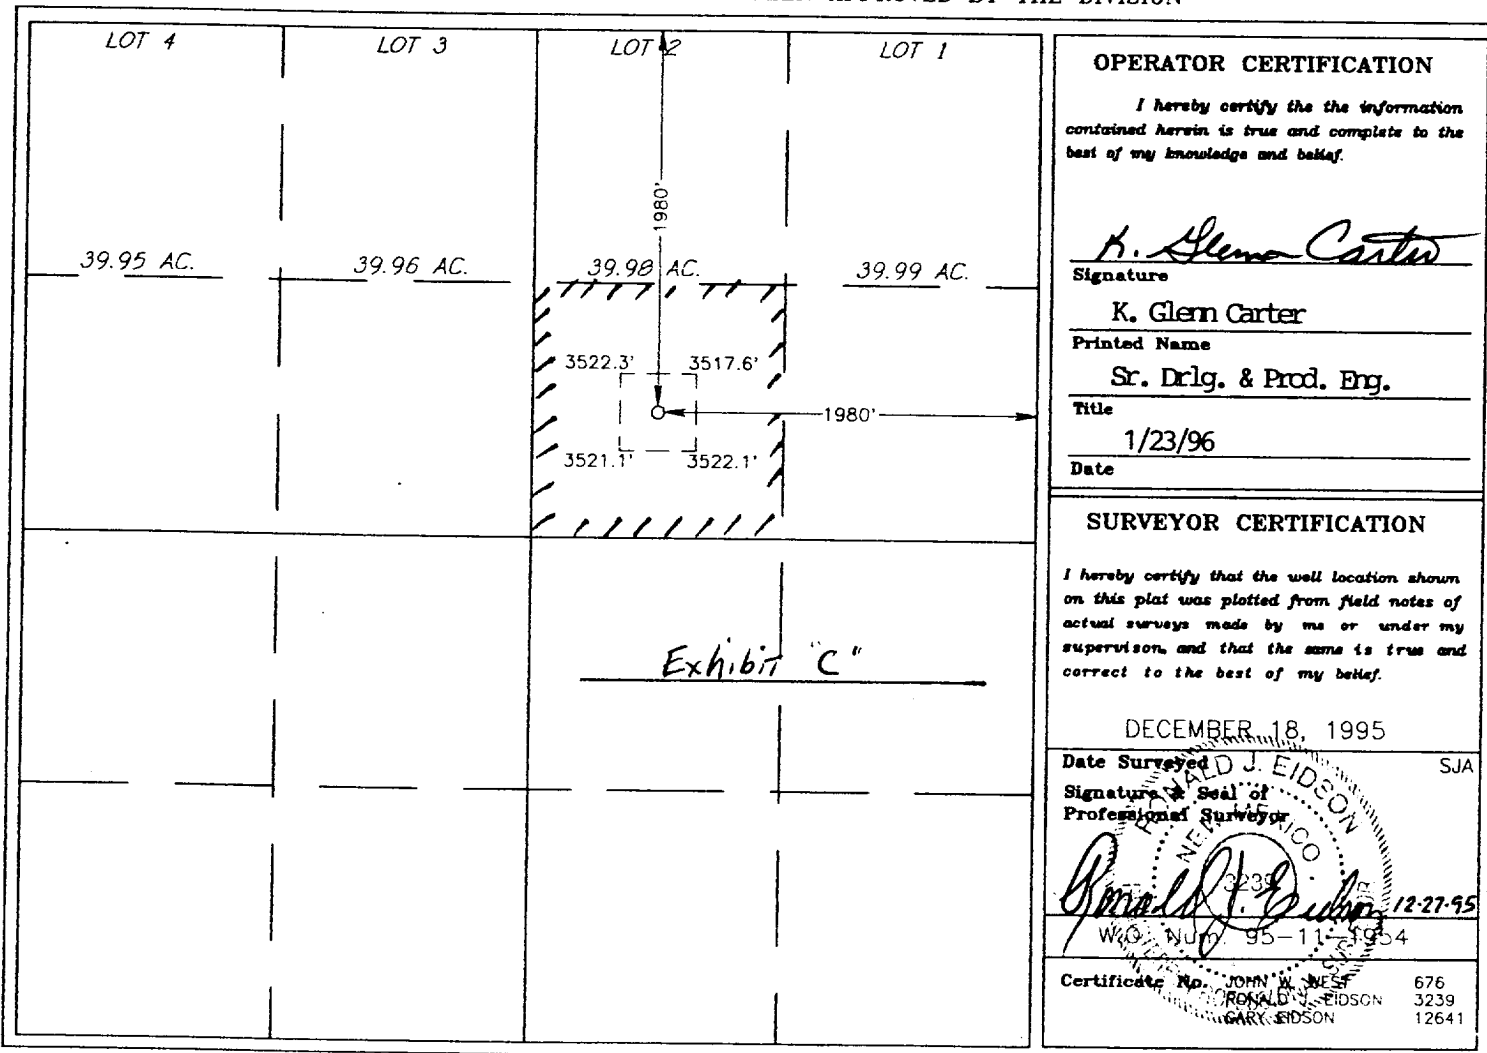 LOT 4 LOT 3 LOT 2 LOT 1
1980'
39.95 AC. 39.96 AC. 39.98 AC. 39.99 AC.
3522.3' 3517.6'
1980'
3521.1' 3522.1'
Exhibit "C"
OPERATOR CERTIFICATION
I hereby certify the the information
contained herein is true and complete to the
best of my knowledge and belief.
K. Glenn Carter
Signature
K. Glenn Carter
Printed Name
Sr. Drlg. & Prod. Eng.
Title
1/23/96
Date
SURVEYOR CERTIFICATION
I hereby certify that the well location shown
on this plat was plotted from field notes of
actual surveys made by me or under my
supervison, and that the same is true and
correct to the best of my belief.
DECEMBER 18, 1995
Date Surveyed SJA
Signature & Seal of
Professional Surveyor
RONALD J. EIDSON
NEW MEXICO
3239
Ronald J. Eidson 12-27-95
W.O. Num. 95-11-1954
Certificate No. JOHN W. WEST 676
RONALD J. EIDSON 3239
GARY EIDSON 12641